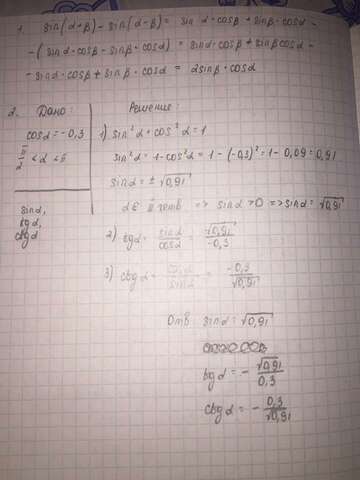 1. sin(α+β) - sin(α-β) = sin α·cosβ + sinβ·cosα -
-( sinα·cosβ - sinβ·cosα) = sinα·cosβ + sinβ cosα -
- sinα·cosβ + sinβ·cosα = 2sinβ·cosα
2. Дано: Решение:
cosα = -0,3
π/2 < α < π
sinα,
tgα,
ctgα
1) sin²α + cos²α = 1
sin²α = 1 - cos²α = 1 - (-0,3)² = 1 - 0,09 = 0,91
sinα = ± √0,91
α ∈ II четв => sinα > 0 => sinα = √0,91
2) tgα = sinα/cosα = √0,91/-0,3
3) ctgα = cosα/sinα = -0,3/√0,91
Отв. sinα = √0,91
tgα = - √0,91/0,3
ctgα = - 0,3/√0,91